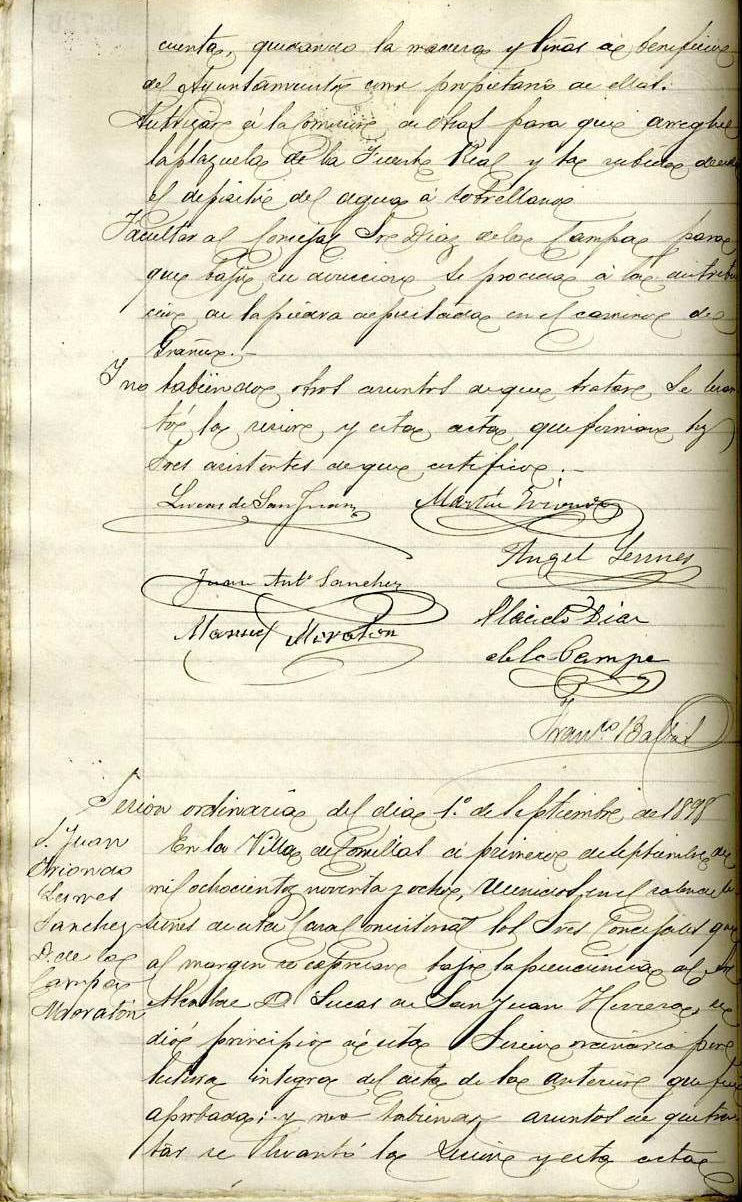 cuenta, quedando la madera y leñas á beneficio
del Ayuntamiento como propietario de ellas.
Autorizar á la comision de obras para que arregle
la plazuela de la Fuente Real y la subida desde
el deposito del agua á Sobrellano
Facultar al Concejal Sr Diaz de la Campa para
que bajo su direccion se proceda á la distribu
cion de la piedra depositada en el camino de
I no habiendo otros asuntos de que tratar se levan
tó la sesion y esta acta que firman los
Sres asistentes de que certifico.-
Lucas de San Juan
Martin
Angel Lennes
Juan Antº Sanchez
Manuel Moraton
Placido Diaz
de la Campa
Franco
Sesion ordinaria del dia 1º de Septiembre de 1898
S. Juan
Lennes
Sanchez
D. de la
Campa
Moratón
En la Villa de Comillas á primero de Septiembre de
mil ochocientos noventa y ocho, reunidos en el salon de se
siones de esta Casa Consistorial los Sres Concejales que
al margen se expresan bajo la presidencia del Sr
Alcalde D. Lucas de San Juan Herrera, se
dió principio á esta Sesion ordinaria por
lectura integra del acta de la anterior que fué
aprobada; y no habiendo asuntos de que tra
tar se levantó la Sesion y esta acta